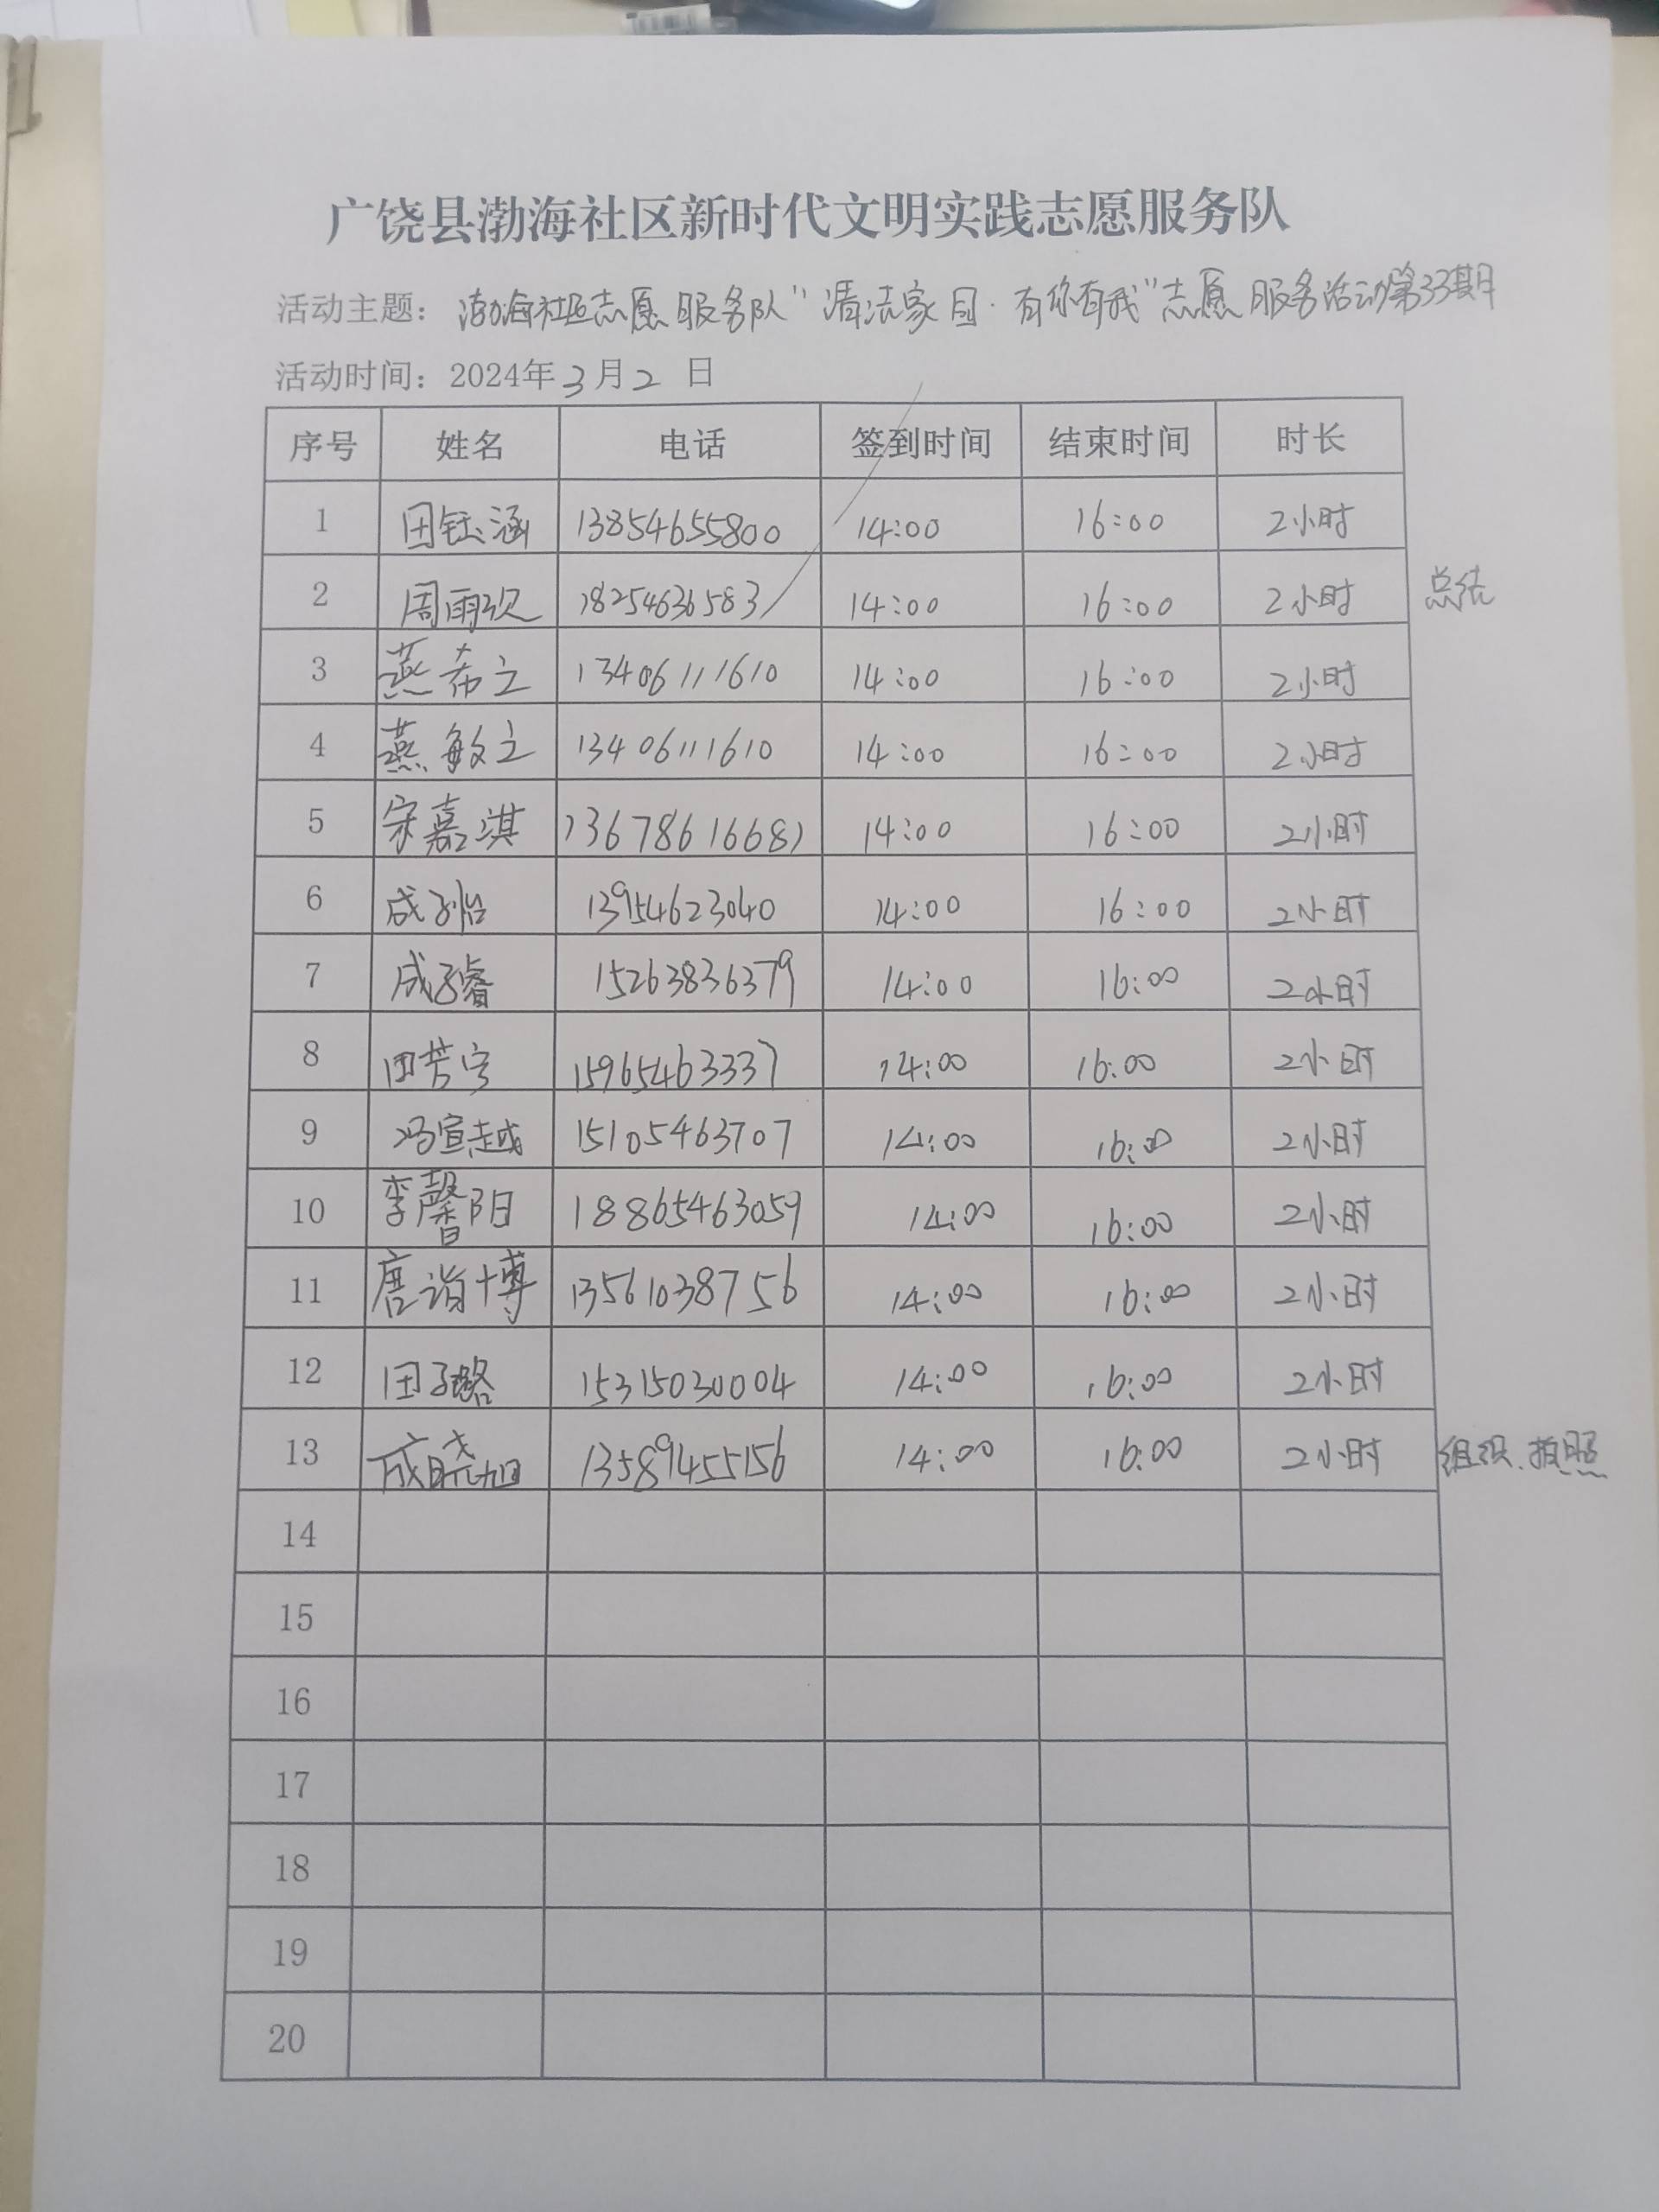 广饶县渤海社区新时代文明实践志愿服务队
活动主题：渤海社区志愿服务队"清洁家园·有你有我"志愿服务活动第33期
活动时间：2024年3月2日
序号 姓名 电话 签到时间 结束时间 时长
1 田钰涵 13854655800 14:00 16:00 2小时
2 周雨欣 18254636583 14:00 16:00 2小时 总结
3 燕希之 13406111610 14:00 16:00 2小时
4 燕敏之 13406111610 14:00 16:00 2小时
5 宋嘉淇 13678616681 14:00 16:00 2小时
6 成子怡 13954623040 14:00 16:00 2小时
7 成子睿 15263836379 14:00 16:00 2小时
8 田芳宇 15965463337 14:00 16:00 2小时
9 冯宣越 15105463707 14:00 16:00 2小时
10 李馨阳 18865463059 14:00 16:00 2小时
11 唐诣博 13561038756 14:00 16:00 2小时
12 田子璐 15315030004 14:00 16:00 2小时
13 成晓旭 13589455156 14:00 16:00 2小时 组织、拍照
14
15
16
17
18
19
20